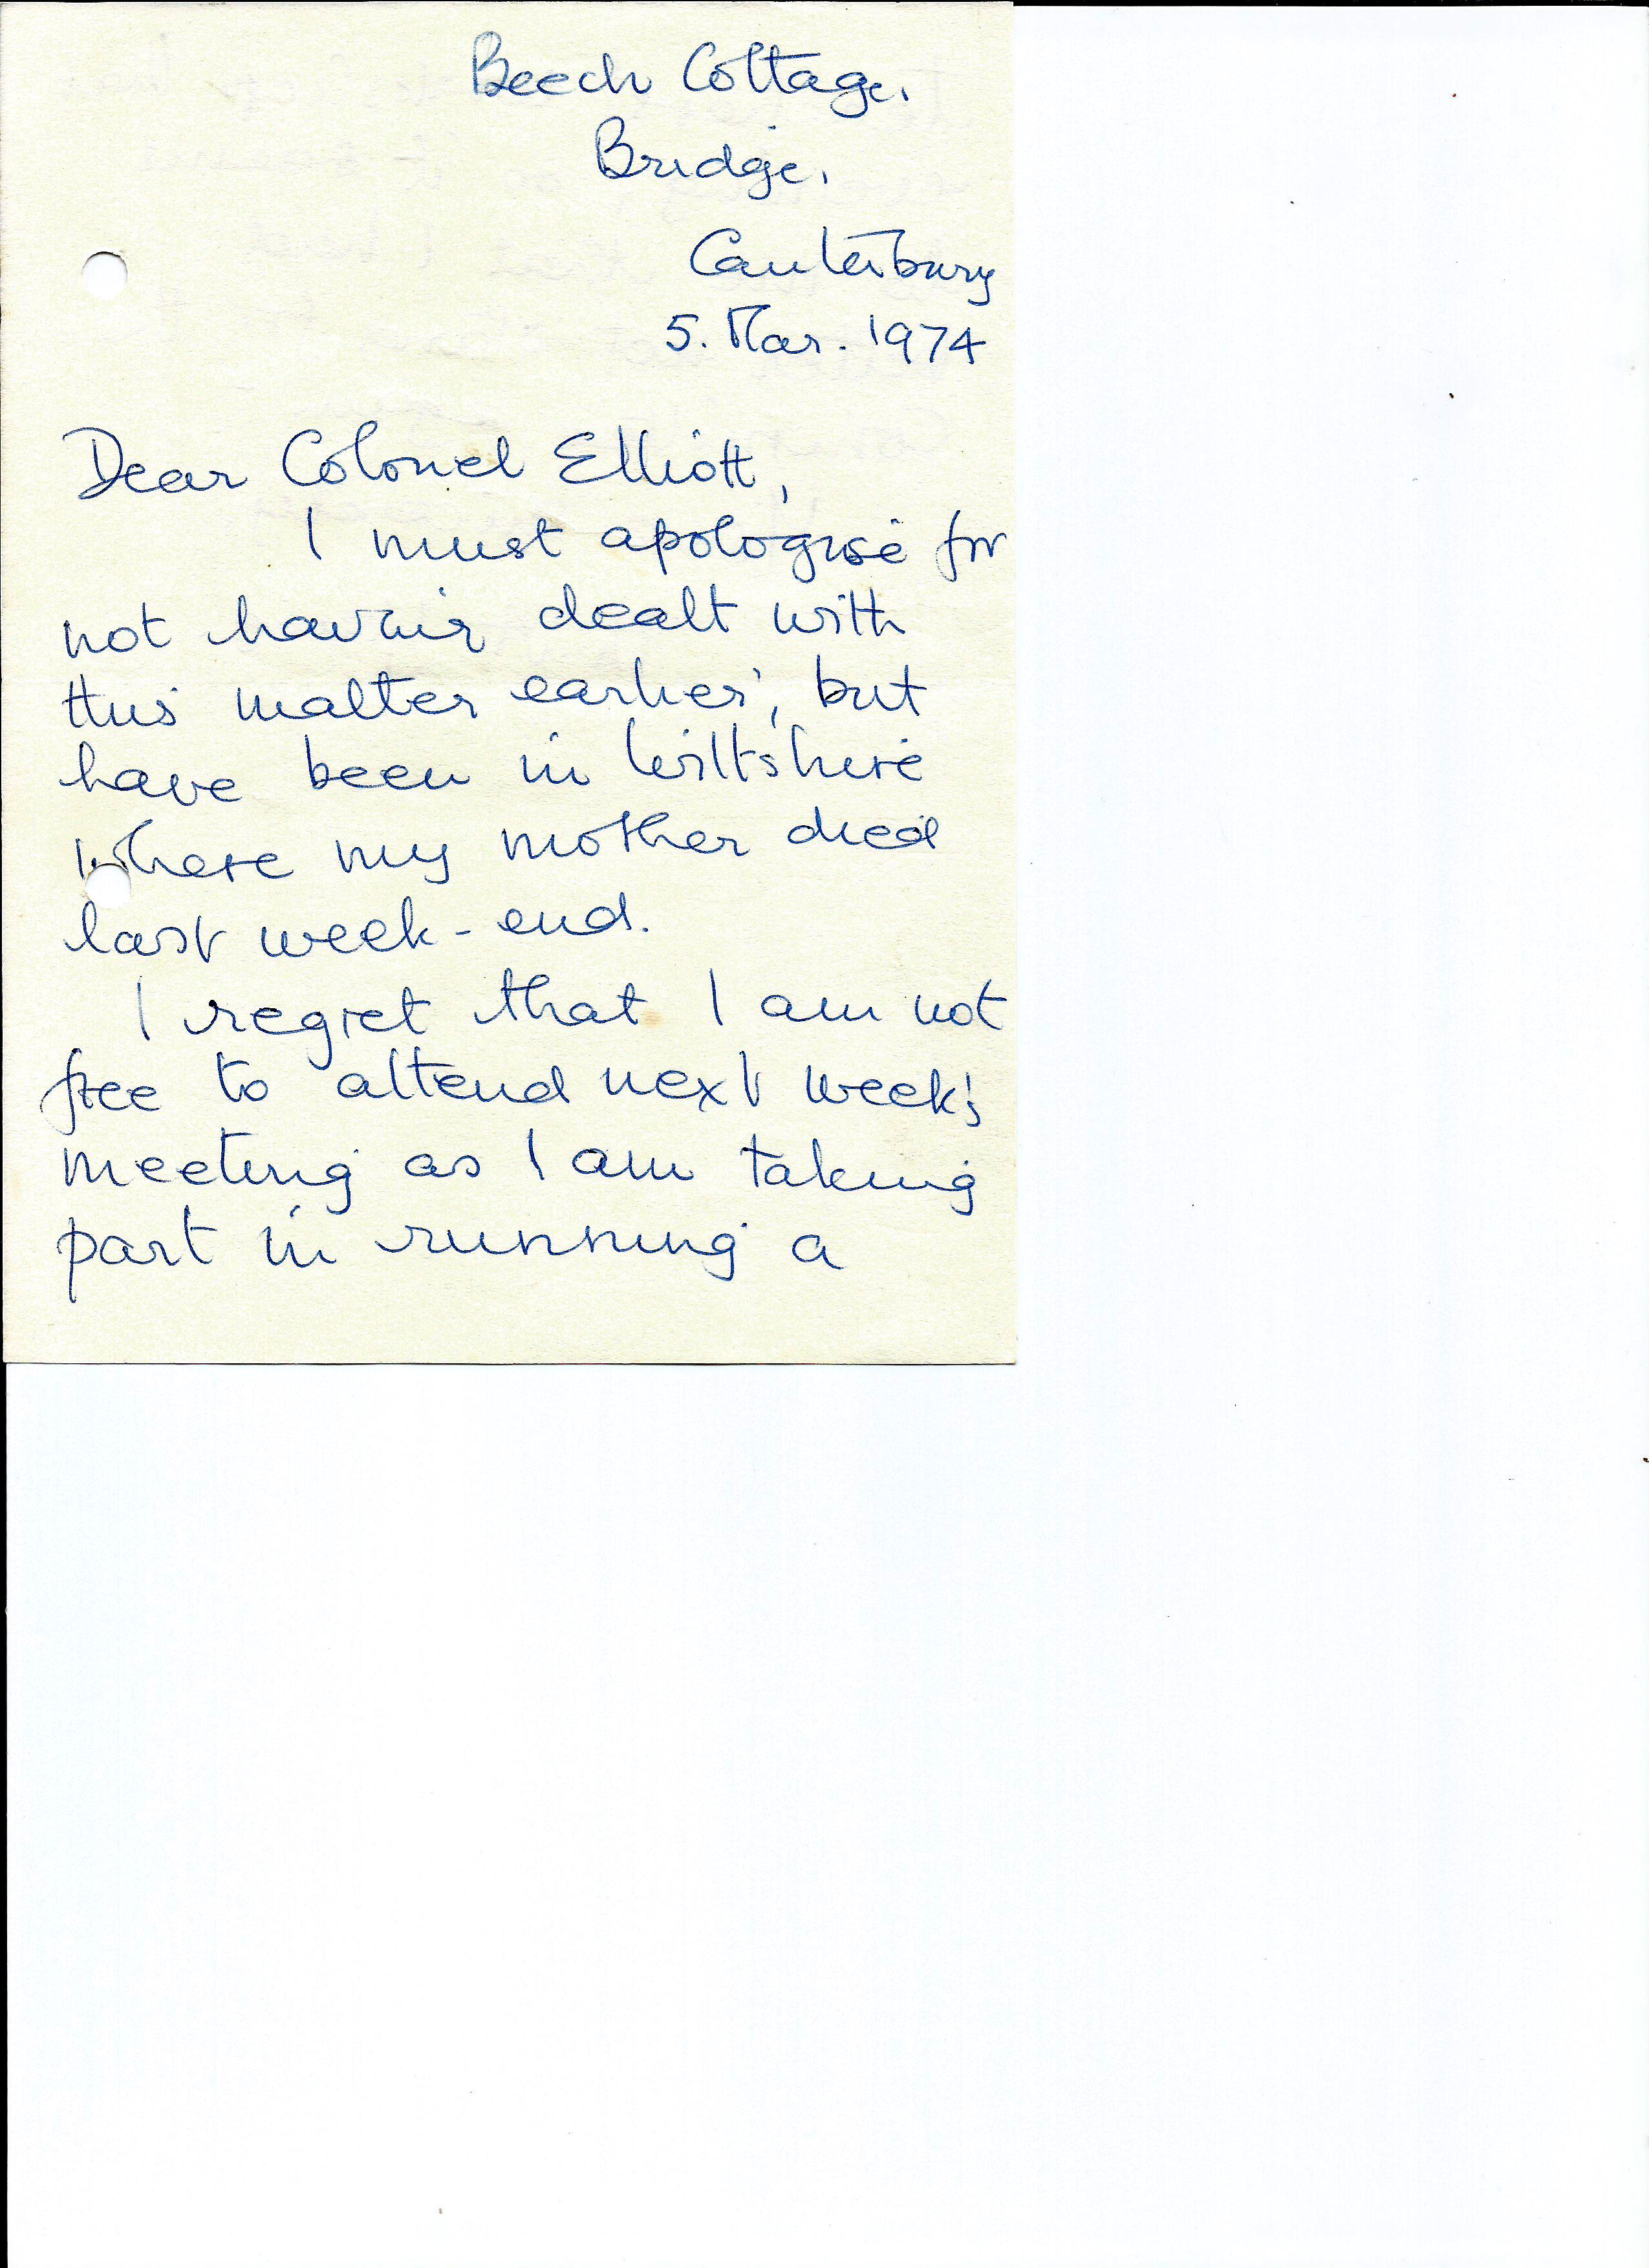 Beech Cottage.
Bridge.
Canterbury
5. Mar. 1974
Dear Colonel Elliott,
I must apologise for
not having dealt with
this matter earlier, but
have been in Wiltshire
where my mother died
last week-end.
I regret that I am not
free to attend next week's
meeting as I am taking
part in running a